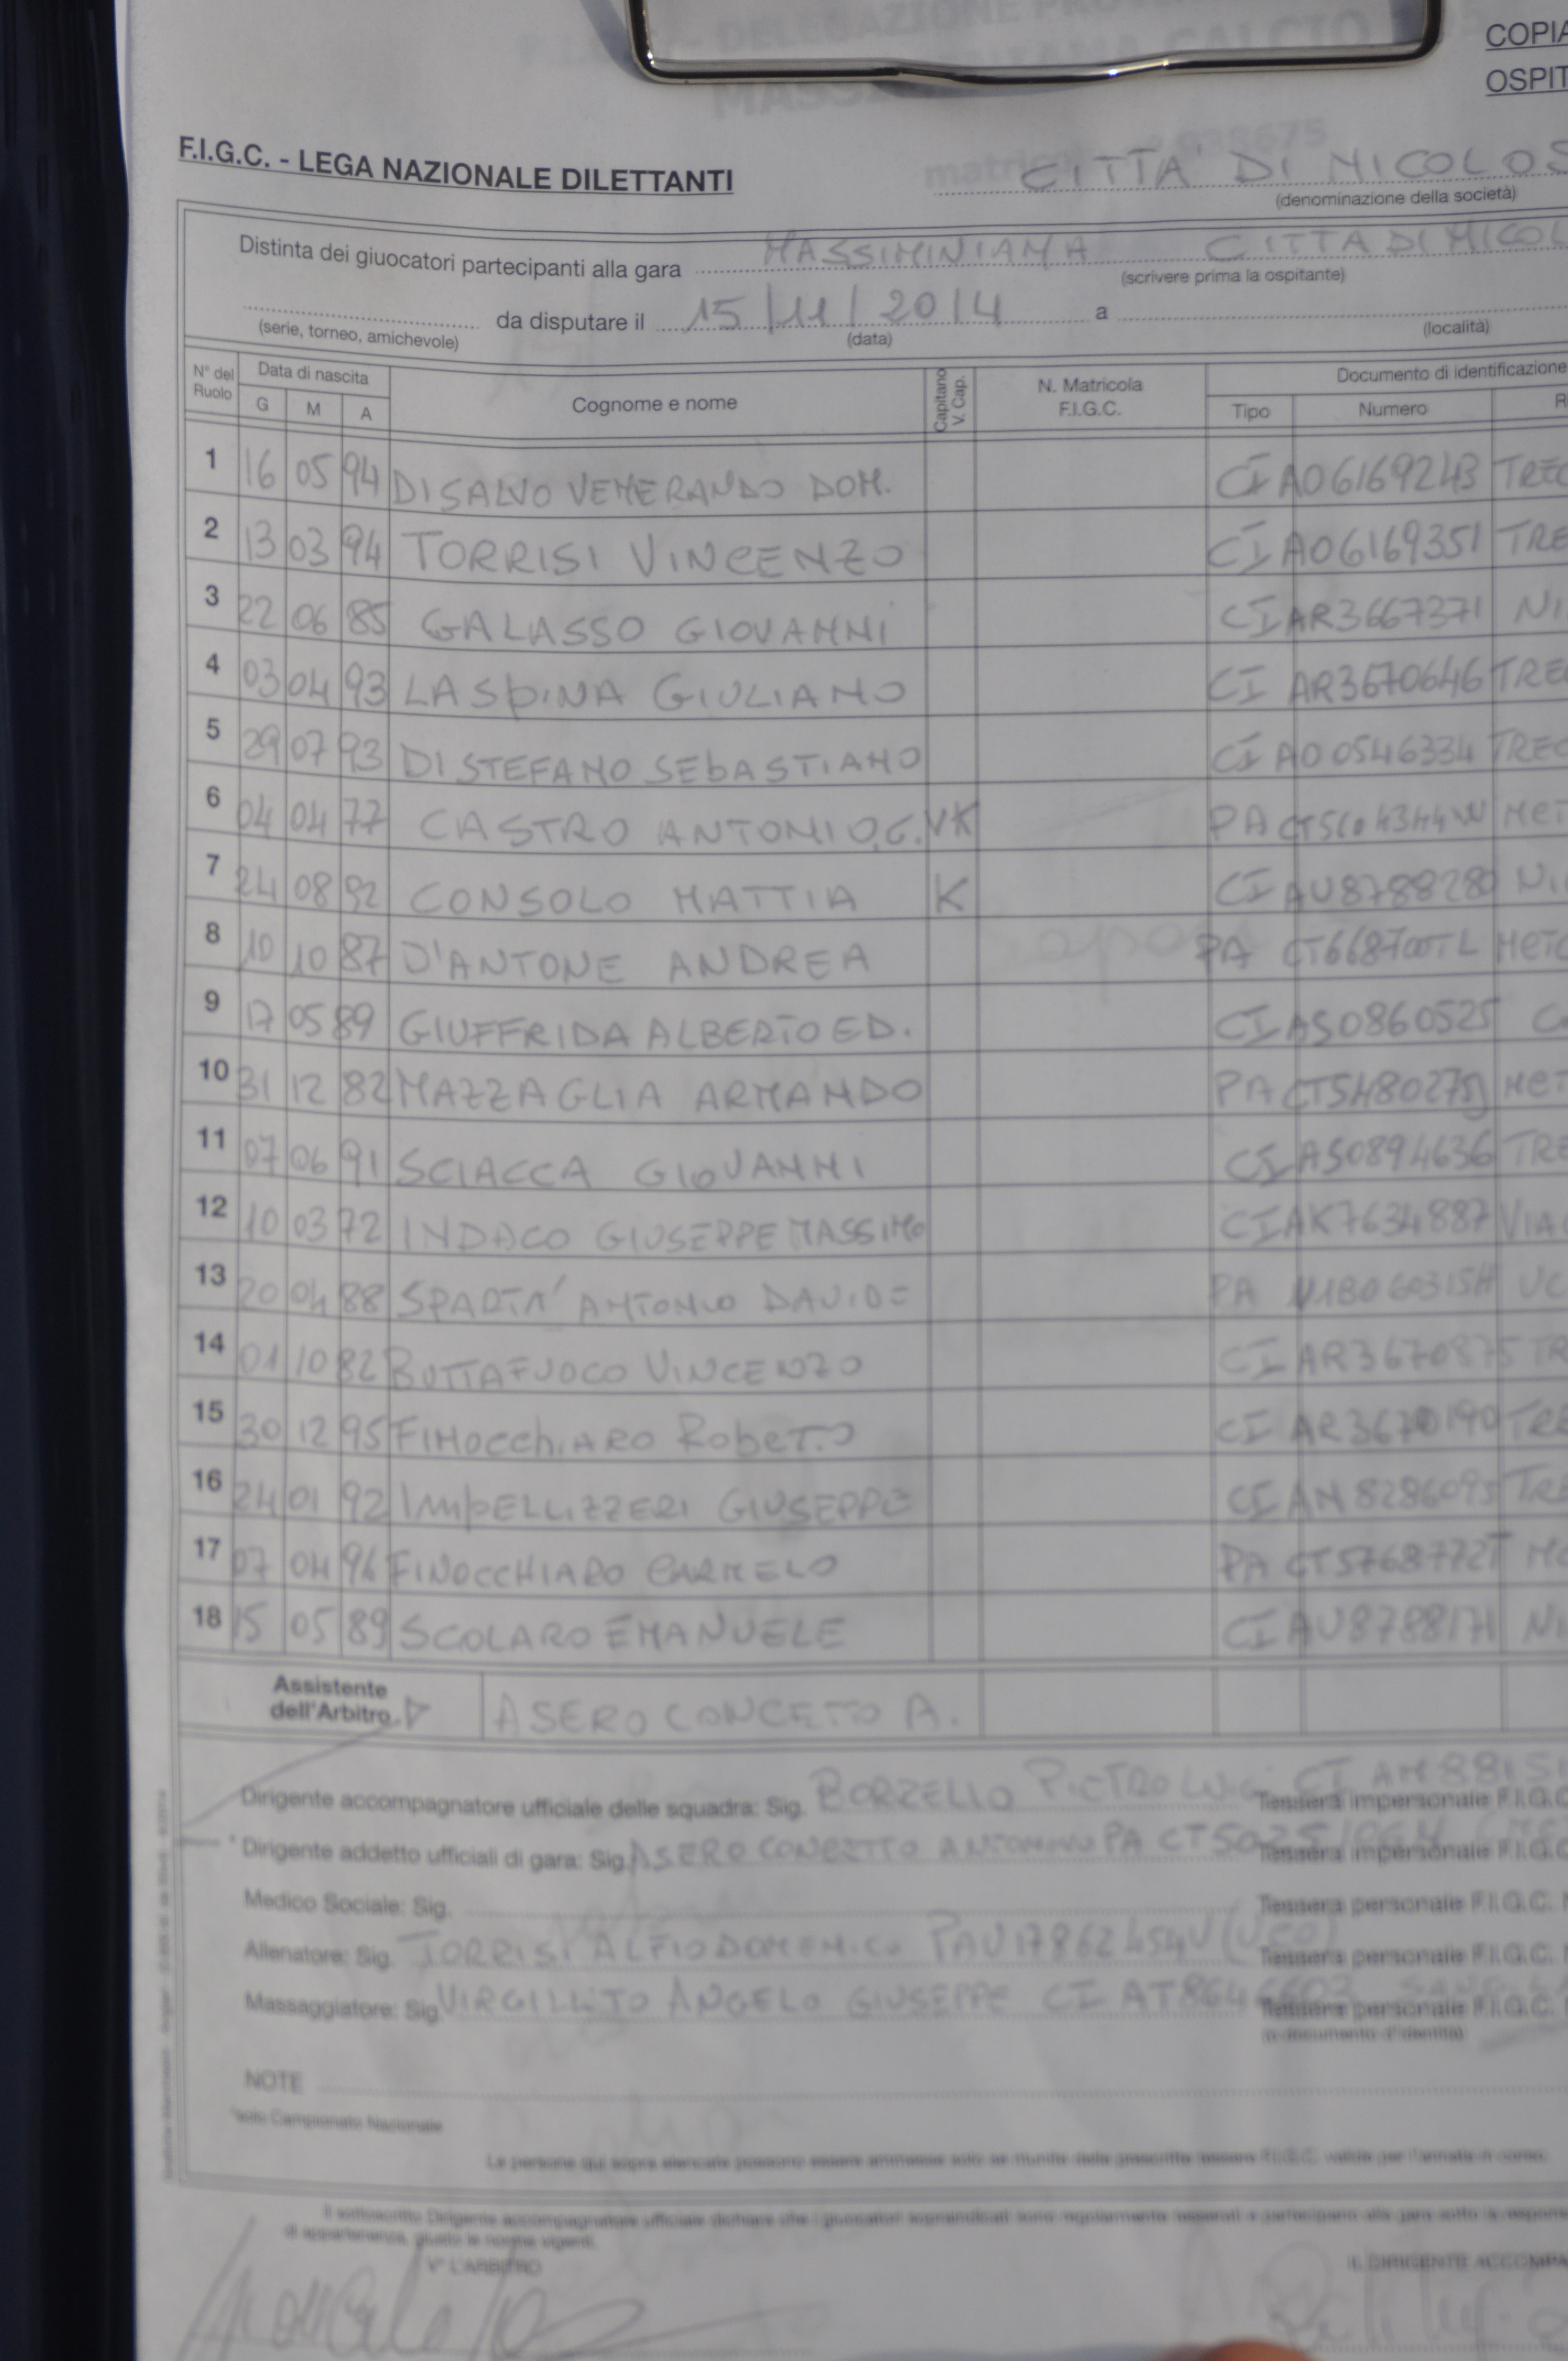 COPIA
OSPIT
F.I.G.C. - LEGA NAZIONALE DILETTANTI
CITTA' DI NICOLOS
(denominazione della società)
Distinta dei giuocatori partecipanti alla gara MASSIMINIANA CITTA DI NICOL
(scrivere prima la ospitante)
da disputare il 15/11/2014 a
(serie, torneo, amichevole) (data) (località)
N° del Ruolo Data di nascita G M A Cognome e nome Capitano V. Cap. N. Matricola F.I.G.C. Documento di identificazione Tipo Numero
1 16 05 94 DI SALVO VENERANDO DOM. CI AO6169243 TREC
2 13 03 94 TORRISI VINCENZO CI AO6169351 TRE
3 22 06 85 GALASSO GIOVANNI CI AR3667371 NI
4 03 04 93 LASPINA GIULIANO CI AR3670646 TREC
5 29 07 93 DI STEFANO SEBASTIANO CI AO0546334 TREC
6 04 04 77 CASTRO ANTONIO G. VK PA MET
7 24 08 92 CONSOLO MATTIA K CI AU8788280 NI
8 10 10 87 D'ANTONE ANDREA PA MET
9 17 05 89 GIUFFRIDA ALBERTO ED. CI AS0860525
10 31 12 82 MAZZAGLIA ARMANDO PA MET
11 07 06 91 SCIACCA GIOVANNI CI AS0894636 TRE
12 10 03 72 INDACO GIUSEPPE MASSIMO CI AK7634887 VIA
13 20 04 88 SPARTA' ANTONIO DAVIDE PA
14 01 10 82 BUTTAFUOCO VINCENZO CI AR3670875 TR
15 30 12 95 FINOCCHIARO ROBERTO CI AR3670190 TRE
16 24 01 92 IMPELLIZZERI GIUSEPPE CI AN8286095 TRE
17 07 04 96 FINOCCHIARO CARMELO PA CT5768772T
18 15 05 89 SCOLARO EMANUELE CI AU8788171 NI
Assistente dell'Arbitro ASERO CONCETTO A.
Dirigente accompagnatore ufficiale delle squadra: Sig. BORZELLO PIETRO LUIGI CI Tessera impersonale F.I.G.C
* Dirigente addetto ufficiali di gara: Sig. ASERO CONCETTO ANTONINO PA Tessera impersonale F.I.G.C
Medico Sociale: Sig. Tessera personale F.I.G.C.
Allenatore: Sig. TORRISI ALFIO DOMENICO Tessera personale F.I.G.C.
Massaggiatore: Sig. VIRGILLITO ANGELO GIUSEPPE CI Tessera personale F.I.G.C.
(o documento d'identità)
NOTE
*solo Campionato Nazionale
Le persone qui sopra elencate possono essere ammesse solo se munite della prescritta tessera F.I.G.C. valida per l'annata in corso.
Il sottoscritto Dirigente accompagnatore ufficiale dichiara che i giuocatori sopraindicati sono regolarmente tesserati e partecipano alla gara sotto la
di appartenenza, giusto le norme vigenti.
V° L'ARBITRO IL DIRIGENTE ACCOMPA